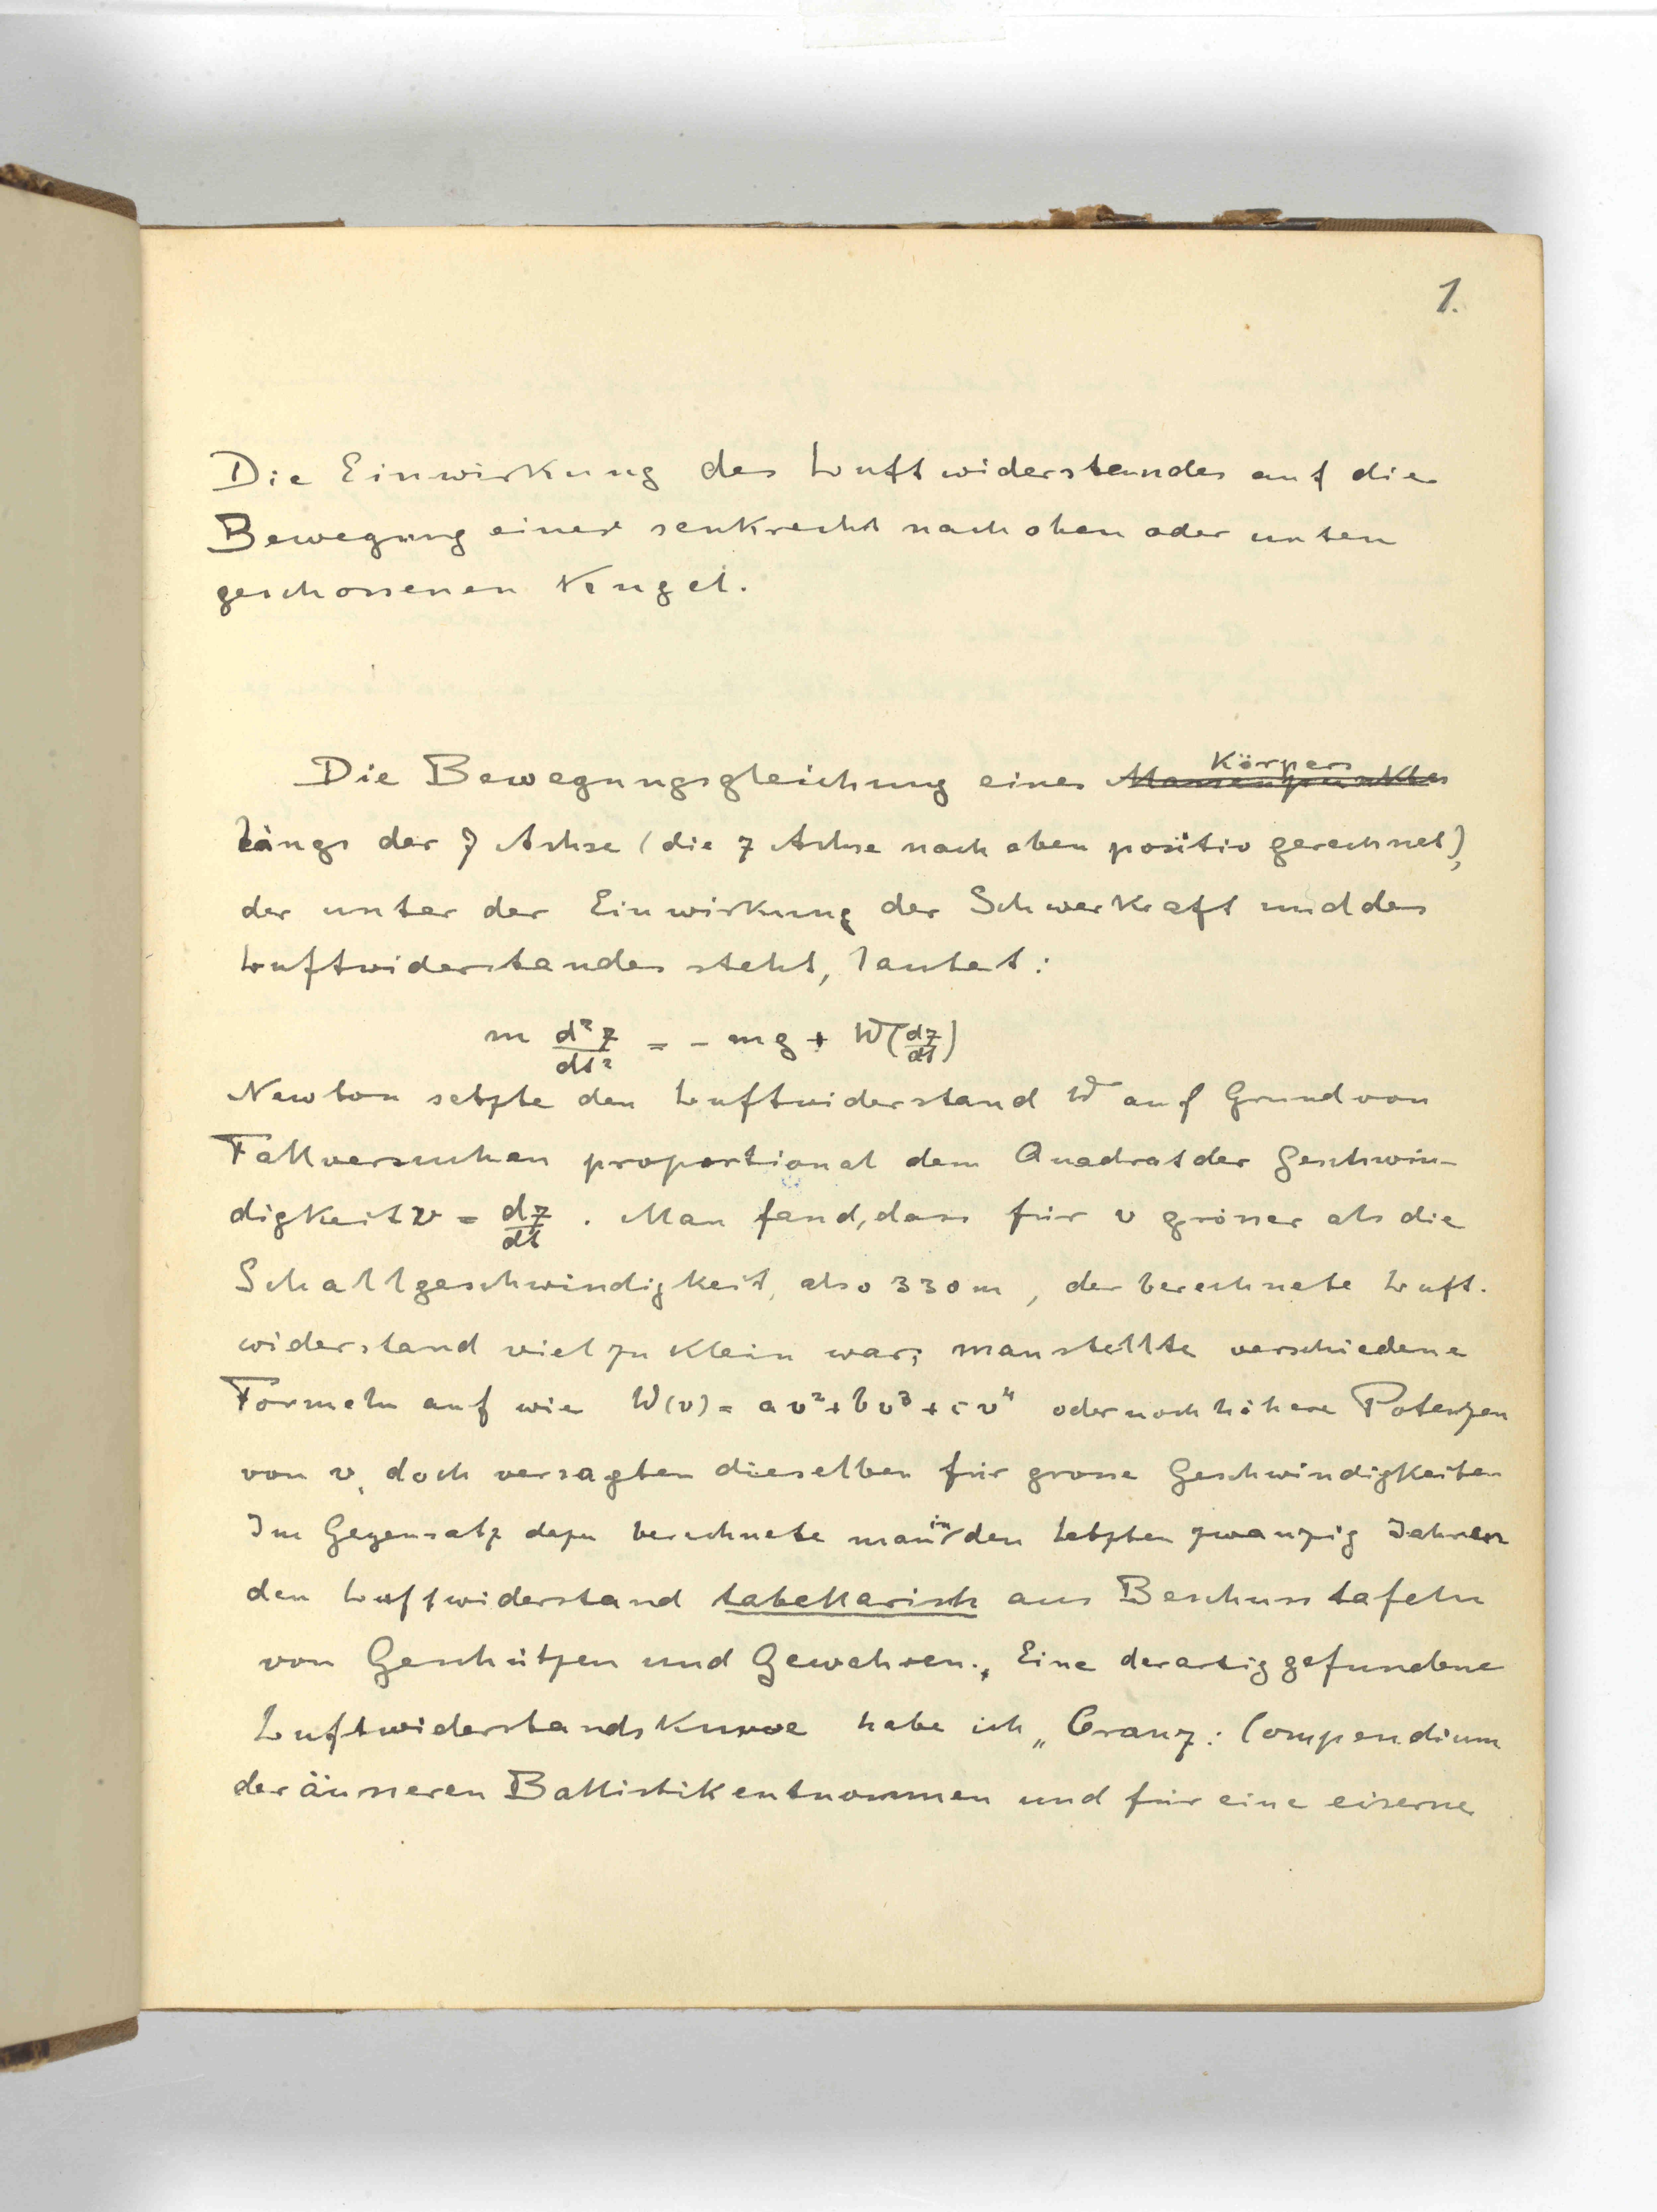 1.
Die Einwirkung des Luftwiderstandes auf die
Bewegung einer senkrecht nach oben oder unten
geschossenen Kugel.
Körpers
Die Bewegungsgleichung eines Massenpunktes
längs der z Achse (die z Achse nach oben positiv gerechnet),
der unter der Einwirkung der Schwerkraft und des
Luftwiderstandes steht, lautet:
m d²z/dt² = - mg + W(dz/dt)
Newton setzte den Luftwiderstand W auf Grund von
Fallversuchen proportional dem Quadrat der Geschwin-
digkeit v = dz/dt. Man fand, dass für v grösser als die
Schallgeschwindigkeit, also 330 m, der berechnete Luft-
widerstand viel zu klein war; man stellte verschiedene
Formeln auf wie W(v) = av² + bv³ + cv⁴ oder noch höhere Potenzen
von v, doch versagten dieselben für grosse Geschwindigkeiten
Im Gegensatz dazu berechnete man in den letzten zwanzig Jahren
den Luftwiderstand tabellarisch aus Beschusstafeln
von Geschützen und Gewehren. Eine derartig gefundene
Luftwiderstandskurve habe ich „Cranz: Compendium
der äusseren Ballistik entnommen und für eine eiserne